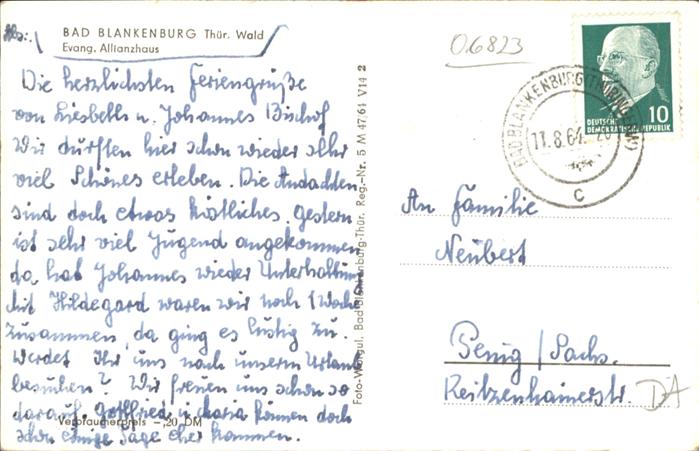 Abs.:
BAD BLANKENBURG Thür. Wald
Evang. Allianzhaus
Die herzlichsten Feriengrüße
von Liesbeth u. Johannes Bischof
Wir durften hier schon wieder sehr
viel Schönes erleben. Die Andachten
sind doch etwas köstliches. Gestern
ist sehr viel Jugend angekommen
da hat Johannes wieder Unterhaltung
Mit Hildegard waren wir noch 1 Woche
zusammen, da ging es lustig zu.
Werdet Ihr uns nach unserm Urlaub
besuchen? Wir freuen uns schon so
darauf. Gottfried u. Maria können doch
schon einige Tage eher kommen.
Verbraucherpreis -,20 DM
Bad Blankenburg-Thür. Reg.-Nr. 5 M 47/64 V14 2
06823
BAD BLANKENBURG (THÜRINGERW)
11.8.64
c
10
DEUTSCHE
DEMOKRATISCHE REPUBLIK
An Familie
Neubert
Penig / Sachs.
Reitzenhainerstr.